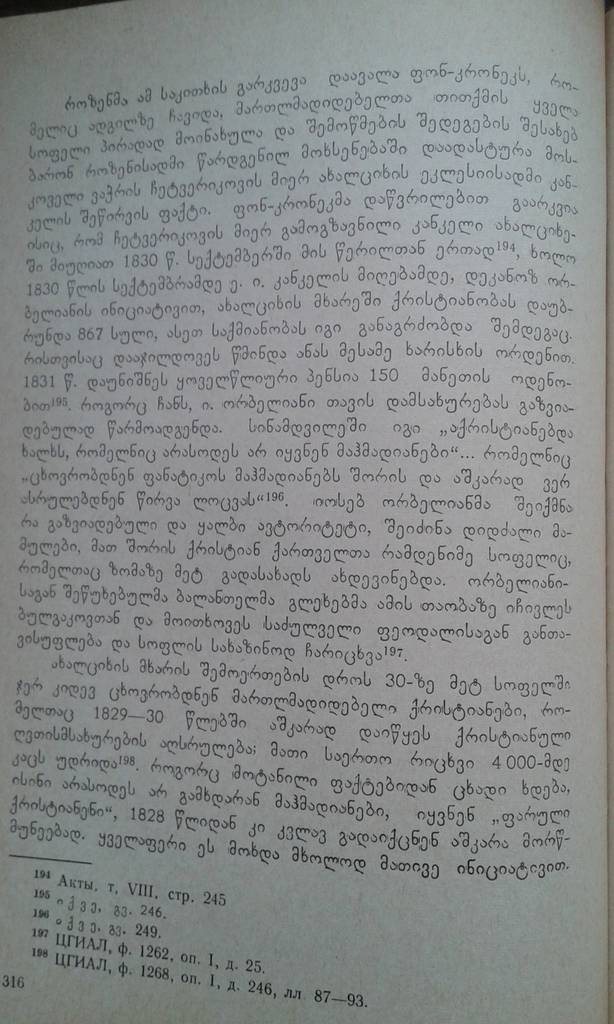 როზენმა ამ საკითხის გარკვევა დაავალა ფონ-კრონეკს, რო-
მელიც ადგილზე ჩავიდა, მართლმადიდებელთა თითქმის ყველა
სოფელი პირადად მოინახულა და შემოწმების შედეგების შესახებ
ბარონ როზენისადმი წარდგენილ მოხსენებაში დაადასტურა მოს-
კოველი ვაჭრის ჩეტვერიკოვის მიერ ახალციხის ეკლესიისადმი კან-
კელის შეწირვის ფაქტი. ფონ-კრონეკმა დაწვრილებით გაარკვია
ისიც, რომ ჩეტვერიკოვის მიერ გამოგზავნილი კანკელი ახალციხე-
ში მიუღიათ 1830 წ. სექტემბერში მის წერილთან ერთად¹⁹⁴, ხოლო
1830 წლის სექტემბრამდე ე. ი. კანკელის მიღებამდე, დეკანოზ ორ-
ბელიანის ინიციატივით, ახალციხის მხარეში ქრისტიანობას დაუბ-
რუნდა 867 სული, ასეთ საქმიანობას იგი განაგრძობდა შემდეგაც.
რისთვისაც დააჯილდოვეს წმინდა ანას მესამე ხარისხის ორდენით.
1831 წ. დაუნიშნეს ყოველწლიური პენსია 150 მანეთის ოდენო-
ბით¹⁹⁵. როგორც ჩანს, ი. ორბელიანი თავის დამსახურებას გაზვია-
დებულად წარმოადგენდა. სინამდვილეში იგი „აქრისტიანებდა
ხალხს, რომელნიც არასოდეს არ იყვნენ მაჰმადიანები“... რომელნიც
„ცხოვრობდნენ ფანატიკოს მაჰმადიანებს შორის და აშკარად ვერ
ასრულებდნენ წირვა ლოცვას“¹⁹⁶. იოსებ ორბელიანმა შეიქმნა
რა გაზვიადებული და ყალბი ავტორიტეტი, შეიძინა დიდძალი მა-
მულები, მათ შორის ქრისტიან ქართველთა რამდენიმე სოფელიც,
რომელთაც ზომაზე მეტ გადასახადს ახდევინებდა. ორბელიანი-
საგან შეწუხებულმა ბალანთელმა გლეხებმა ამის თაობაზე იჩივლეს
ბულგაკოვთან და მოითხოვეს საძულველი ფეოდალისაგან განთა-
ვისუფლება და სოფლის სახაზინოდ ჩარიცხვა¹⁹⁷.
ახალციხის მხარის შემოერთების დროს 30-ზე მეტ სოფელში
ჯერ კიდევ ცხოვრობდნენ მართლმადიდებელი ქრისტიანები, რო-
მელთაც 1829—30 წლებში აშკარად დაიწყეს ქრისტიანული
ღვთისმსახურების აღსრულება; მათი საერთო რიცხვი 4 000-მდე
კაცს უდრიდა¹⁹⁸. როგორც მოტანილი ფაქტებიდან ცხადი ხდება,
ისინი არასოდეს არ გამხდარან მაჰმადიანები, იყვნენ „ფარული
ქრისტიანენი“, 1828 წლიდან კი კვლავ გადაიქცნენ აშკარა მორწ-
მუნეებად. ყველაფერი ეს მოხდა მხოლოდ მათივე ინიციატივით.
¹⁹⁴ Акты, т, VIII, стр. 245
¹⁹⁵ იქვე, გვ. 246.
¹⁹⁶ იქვე, გვ. 249.
¹⁹⁷ ЦГИАЛ, ф. 1262, оп. I, д. 25.
¹⁹⁸ ЦГИАЛ, ф. 1268, оп. I, д. 246, лл 87—93.
316